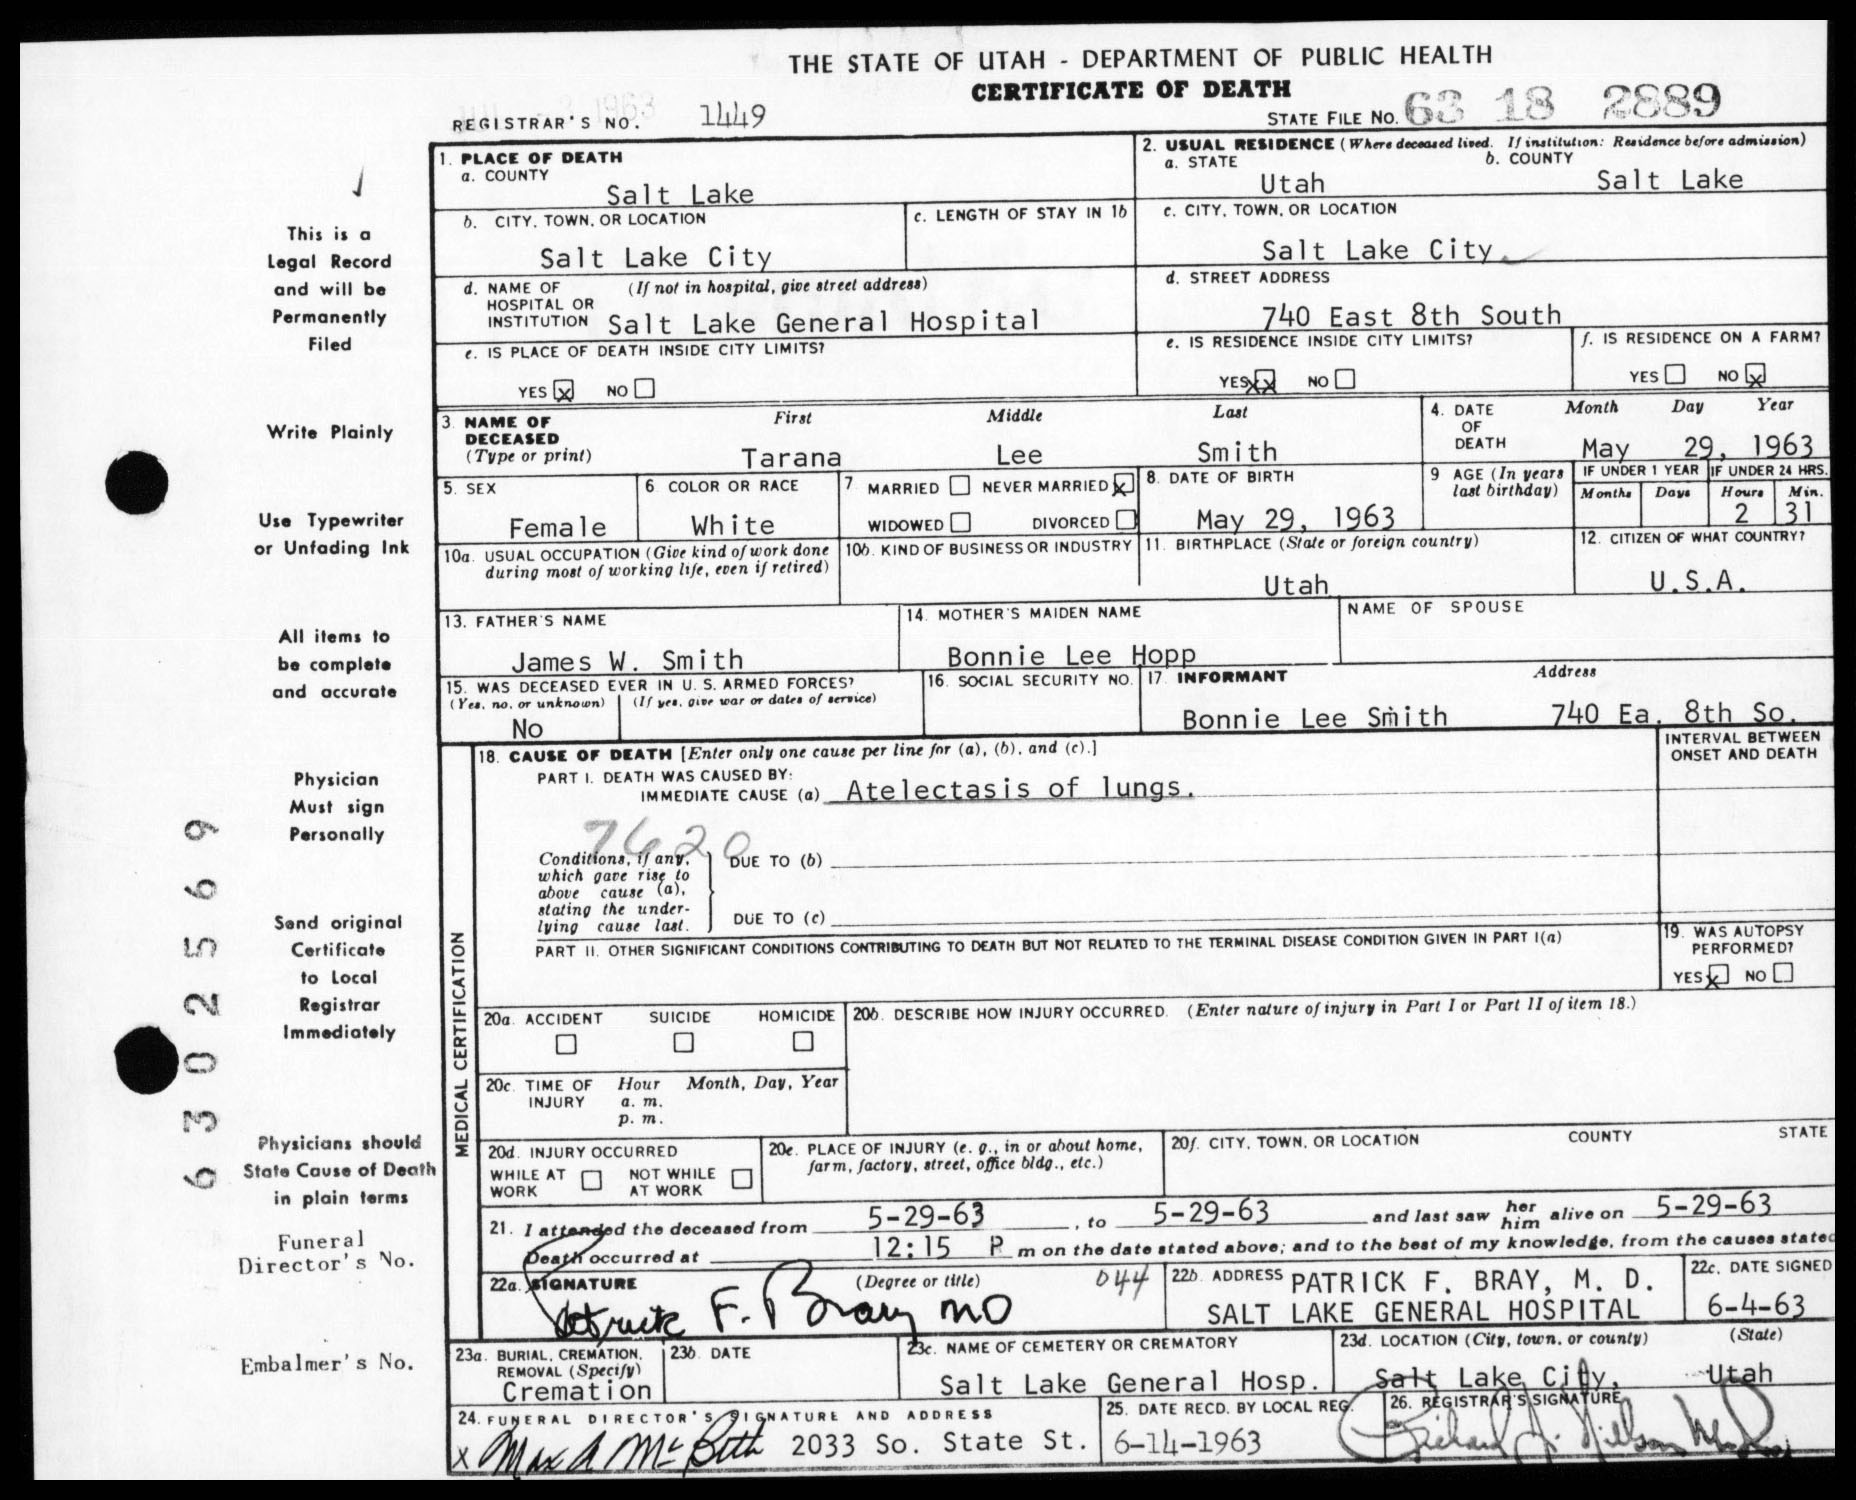 THE STATE OF UTAH - DEPARTMENT OF PUBLIC HEALTH
CERTIFICATE OF DEATH
REGISTRAR'S NO. 1449
STATE FILE NO. 63 18 2889
This is a
Legal Record
and will be
Permanently
Filed
Write Plainly
Use Typewriter
or Unfading Ink
All items to
be complete
and accurate
Physician
Must sign
Personally
Send original
Certificate
to Local
Registrar
Immediately
Physicians should
State Cause of Death
in plain terms
Funeral
Director's No.
Embalmer's No.
6 3 0 2 5 6 9
1. PLACE OF DEATH
a. COUNTY
Salt Lake
b. CITY, TOWN, OR LOCATION
Salt Lake City
c. LENGTH OF STAY IN 1b
d. NAME OF (If not in hospital, give street address)
HOSPITAL OR
INSTITUTION Salt Lake General Hospital
e. IS PLACE OF DEATH INSIDE CITY LIMITS?
YES X NO
2. USUAL RESIDENCE (Where deceased lived. If institution: Residence before admission)
a. STATE b. COUNTY
Utah Salt Lake
c. CITY, TOWN, OR LOCATION
Salt Lake City
d. STREET ADDRESS
740 East 8th South
e. IS RESIDENCE INSIDE CITY LIMITS?
YES XX NO
f. IS RESIDENCE ON A FARM?
YES NO X
3. NAME OF DECEASED (Type or print)
First Middle Last
Tarana Lee Smith
4. DATE OF DEATH
Month Day Year
May 29, 1963
5. SEX
Female
6. COLOR OR RACE
White
7. MARRIED NEVER MARRIED X
WIDOWED DIVORCED
8. DATE OF BIRTH
May 29, 1963
9 AGE (In years last birthday)
IF UNDER 1 YEAR IF UNDER 24 HRS.
Months Days Hours Min.
2 31
10a. USUAL OCCUPATION (Give kind of work done
during most of working life, even if retired)
10b. KIND OF BUSINESS OR INDUSTRY
11. BIRTHPLACE (State or foreign country)
Utah
12. CITIZEN OF WHAT COUNTRY?
U.S.A.
13. FATHER'S NAME
James W. Smith
14. MOTHER'S MAIDEN NAME
Bonnie Lee Hopp
NAME OF SPOUSE
15. WAS DECEASED EVER IN U. S. ARMED FORCES?
(Yes, no, or unknown) (If yes, give war or dates of service)
No
16. SOCIAL SECURITY NO.
17. INFORMANT Address
Bonnie Lee Smith 740 Ea. 8th So.
MEDICAL CERTIFICATION
18. CAUSE OF DEATH [Enter only one cause per line for (a), (b), and (c).]
INTERVAL BETWEEN
ONSET AND DEATH
PART I. DEATH WAS CAUSED BY:
IMMEDIATE CAUSE (a) Atelectasis of lungs.
7620
Conditions, if any,
which gave rise to
above cause (a),
stating the under-
lying cause last.
DUE TO (b)
DUE TO (c)
PART II. OTHER SIGNIFICANT CONDITIONS CONTRIBUTING TO DEATH BUT NOT RELATED TO THE TERMINAL DISEASE CONDITION GIVEN IN PART I(a)
19. WAS AUTOPSY
PERFORMED?
YES X NO
20a. ACCIDENT SUICIDE HOMICIDE
20b. DESCRIBE HOW INJURY OCCURRED. (Enter nature of injury in Part I or Part II of item 18.)
20c. TIME OF INJURY Hour Month, Day, Year
a. m.
p. m.
20d. INJURY OCCURRED
WHILE AT WORK NOT WHILE AT WORK
20e. PLACE OF INJURY (e. g., in or about home,
farm, factory, street, office bldg., etc.)
20f. CITY, TOWN, OR LOCATION COUNTY STATE
21. I attended the deceased from 5-29-63, to 5-29-63 and last saw her him alive on 5-29-63
Death occurred at 12:15 P m on the date stated above; and to the best of my knowledge, from the causes stated
22a. SIGNATURE (Degree or title) 044
Patrick F. Bray MD
22b. ADDRESS PATRICK F. BRAY, M. D.
SALT LAKE GENERAL HOSPITAL
22c. DATE SIGNED
6-4-63
23a. BURIAL, CREMATION,
REMOVAL (Specify)
Cremation
23b. DATE
23c. NAME OF CEMETERY OR CREMATORY
Salt Lake General Hosp.
23d. LOCATION (City, town, or county) (State)
Salt Lake City, Utah
24. FUNERAL DIRECTOR'S SIGNATURE AND ADDRESS
X Max A McBeth 2033 So. State St.
25. DATE RECD. BY LOCAL REG.
6-14-1963
26. REGISTRAR'S SIGNATURE